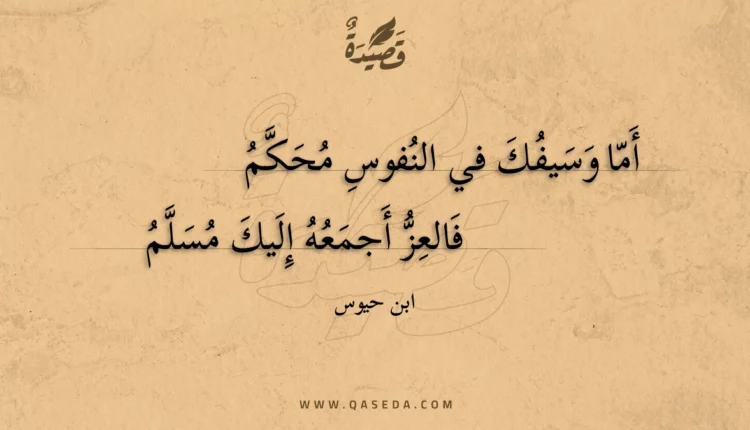 قَصِيدَةٌ
أَمّا وَسَيفُكَ في النُفوسِ مُحَكَّمُ
فَالعِزُّ أَجمَعُهُ إِلَيكَ مُسَلَّمُ
ابن حيوس
WWW.QASEDA.COM